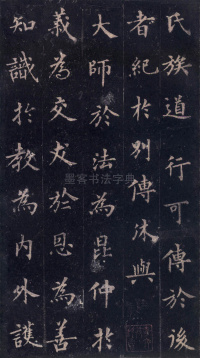 氏族道行可傳於後
者紀於別傳休與
大師於法為昆仲於
義為交友於恩為善
知識於教為內外護
墨客书法字典